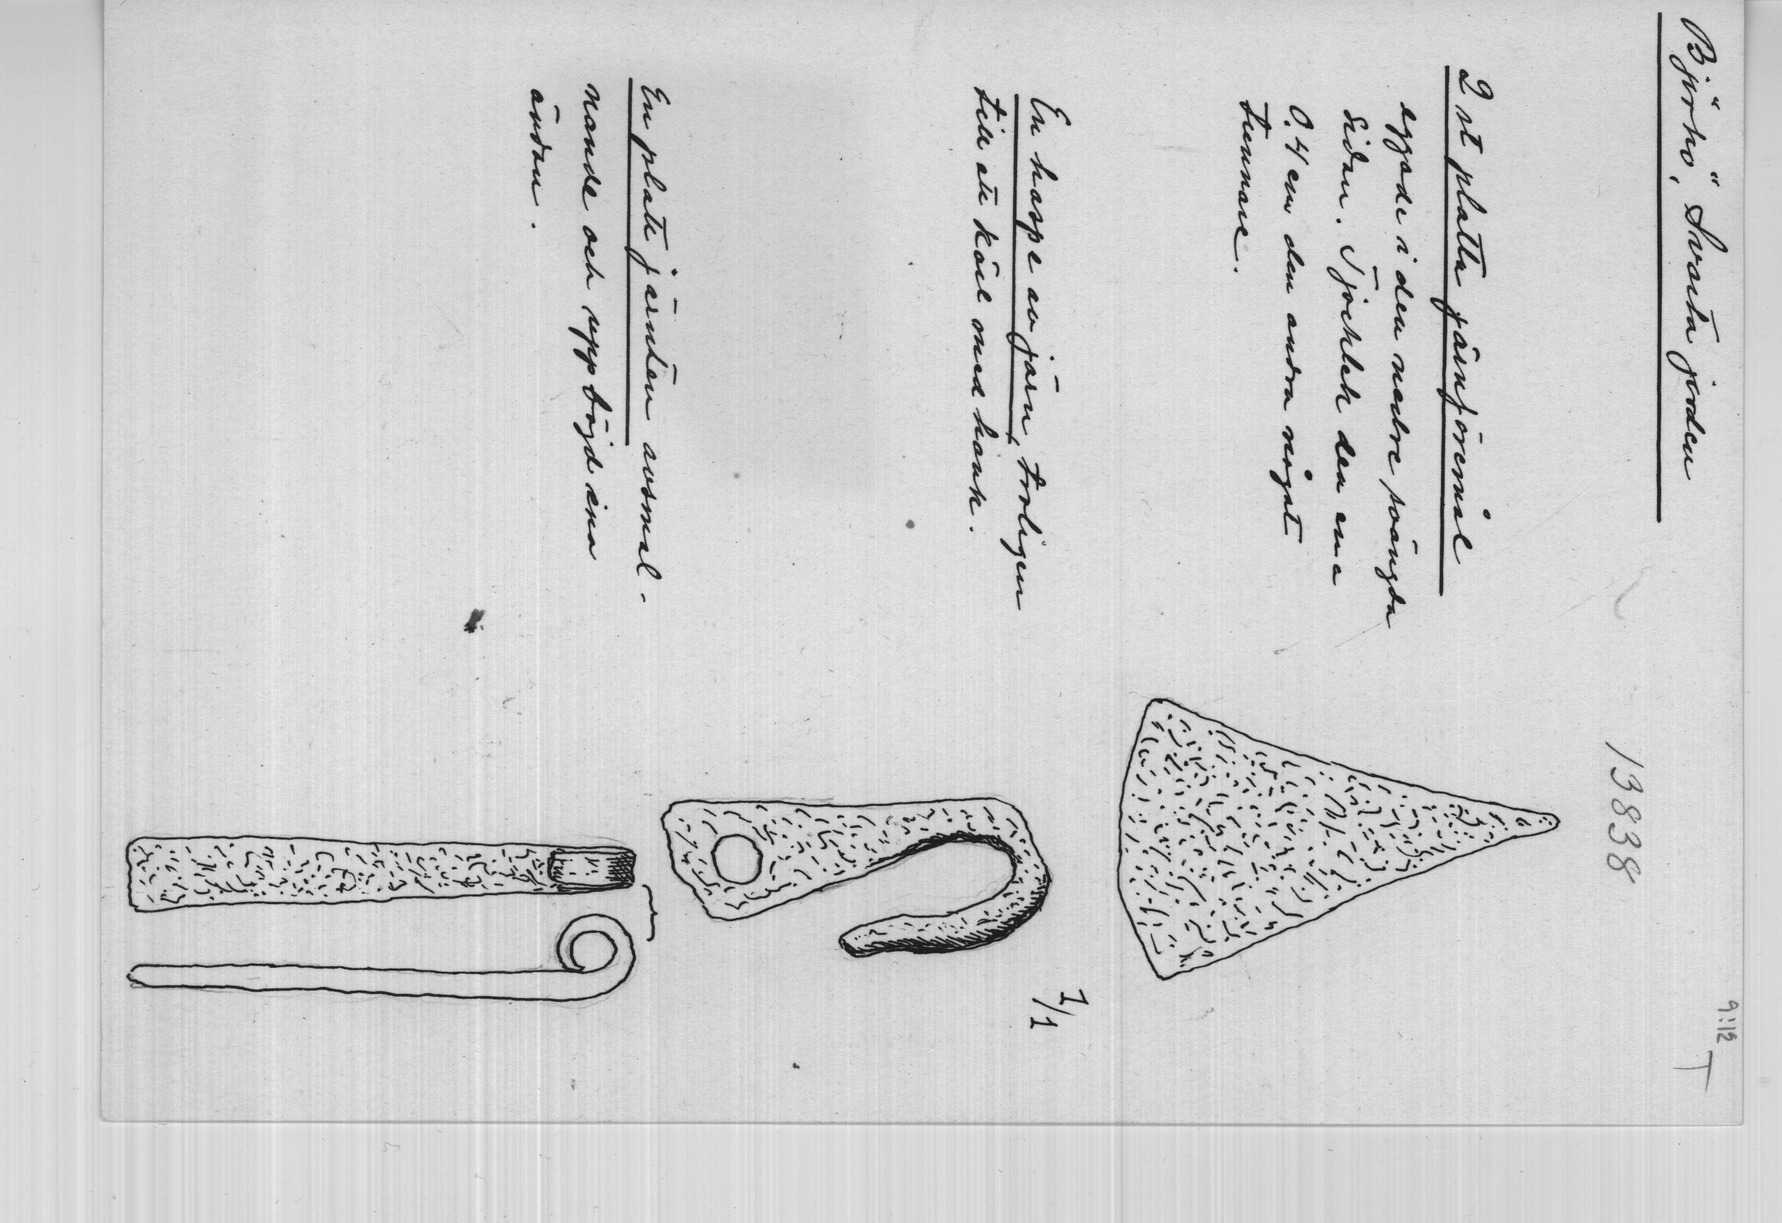 Björkö, Svarta jorden
9:12
T
13838
2 st platta järnföremål
eggade i den nedre svängda
sidan. Tjocklek den ena
0,4 cm den andra något
tunnare.
En haspe av järn, troligen
till ett kärl med hank.
1/1
En platt järnten avsmal-
nande och uppböjd ena
ändan.